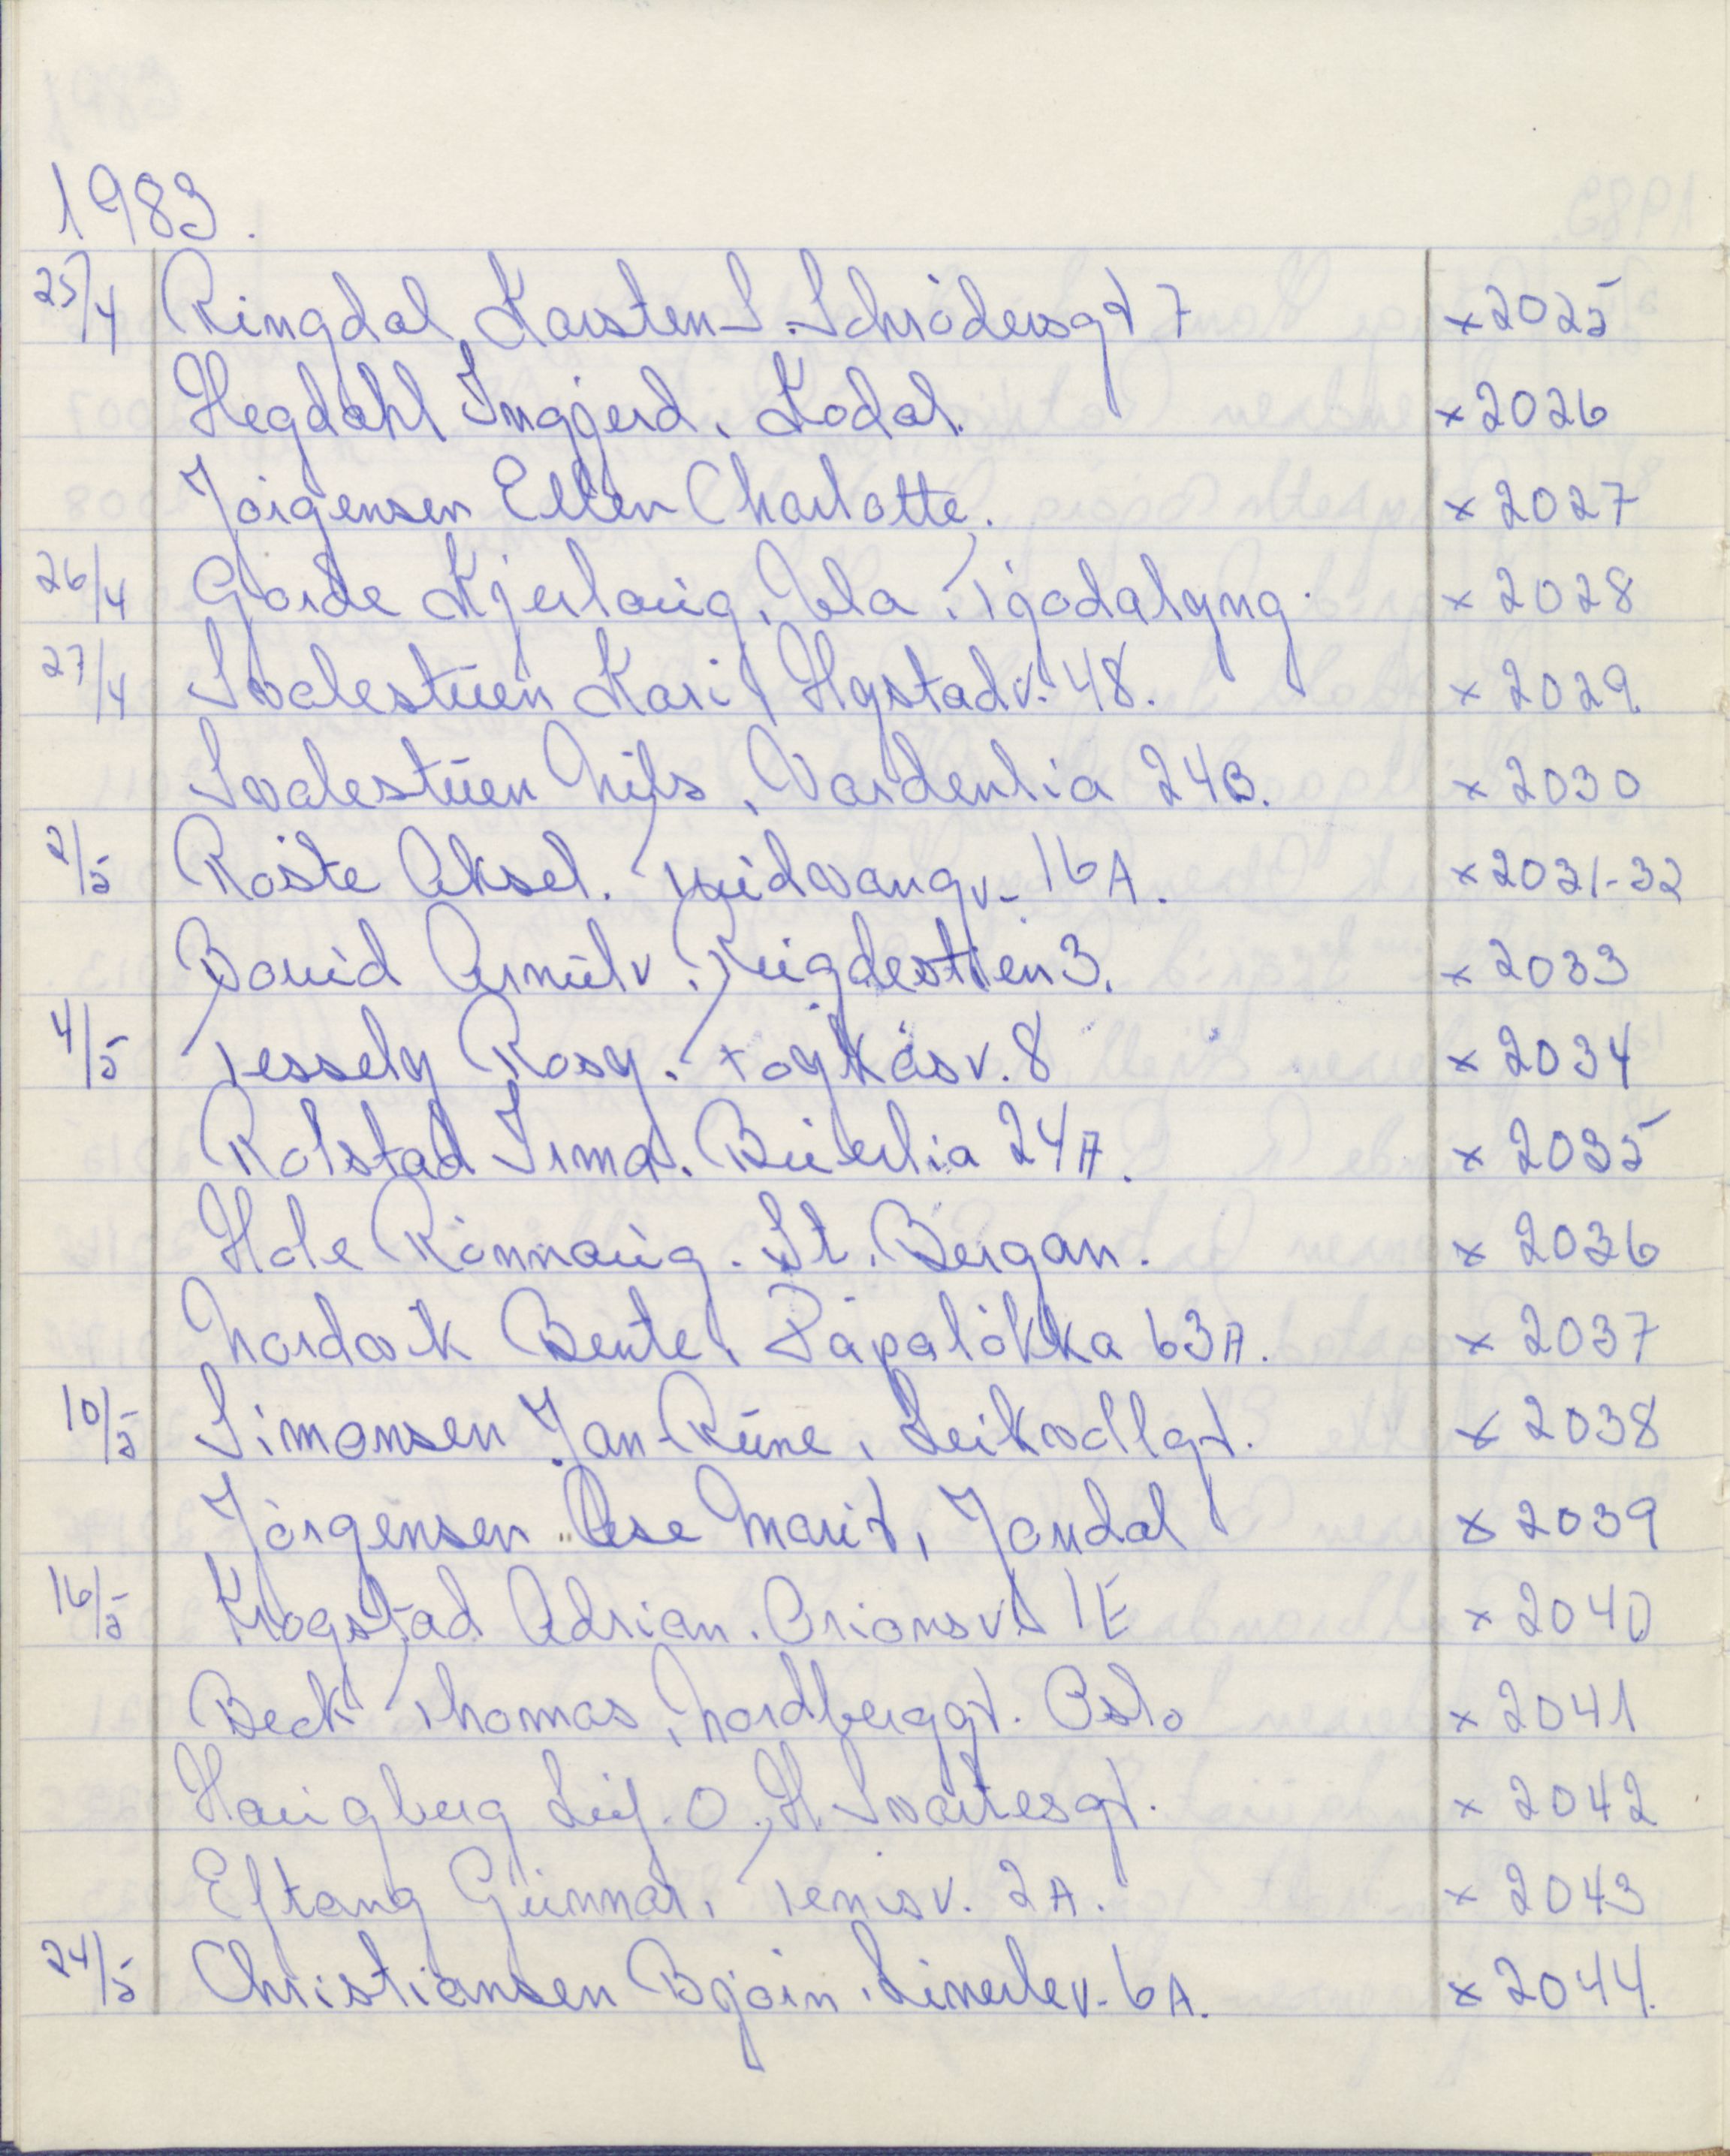 1983.
25/4 Ringdal Karsten S. Schrödersgt 7 x 2025
Hegdahl Ingjerd. Kodal. x 2026
Jörgensen Ellen Charlotte. x 2027
26/4 Gjerlaug, Ula, Tjodalyng. x 2028
27/4 Svalestuen Kari, Hystadv. 48. x 2029.
Svalestuen Nils, Vardenlia 24B. x 2030
2/5 Röste Aksel. Midvangv. 16A. x 2031-32
Bovid Arnulv. Rugdestien 3. x 2033
4/5 Tessely Rosy. Töykåsv. 8 x 2034
Rolstad Irma. Buerlia 24A. x 2035
Hole Rönnaug. St. Bergan. x 2036
Nordvik Bente, Papalökka 63A. x 2037
10/5 Simonsen Jan-Rune, Leikvollgt. x 2038
Jörgensen Åse Marit, Jondal x 2039
16/5 Krogstad Adrian. Orionsv. 1E x 2040
Beck Thomas, Nordberggt. Oslo x 2041
Haugberg Leif. O. H. Svartesgt. x 2042
Eftang Gunnar, Temsv. 2A. x 2043
24/5 Christiansen Bjørn. Linerlev. 6A. x 2044.